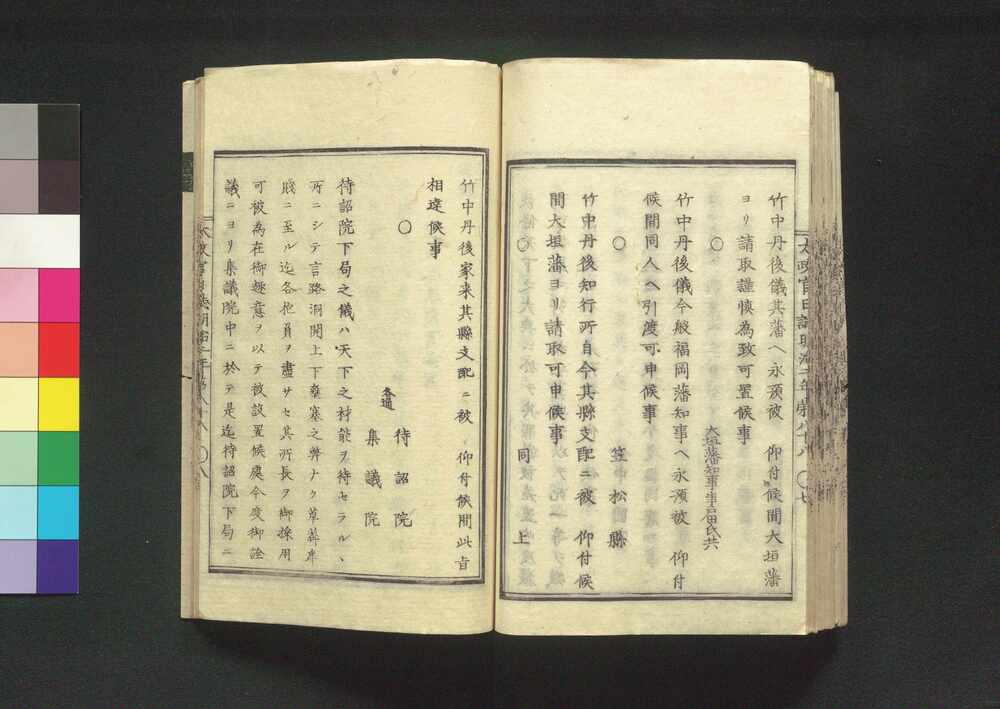 竹中丹後儀其藩ヘ永預被　仰付候間大垣藩
ヨリ請取謹慎為致可置候事
〇　大垣藩知事戸田氏共
竹中丹後儀今般福岡藩知事ヘ永預被　仰付
候間同人ヘ引渡可申候事
〇　笠松縣
竹中丹後知行所自今其縣支配ニ被　仰付候
間大垣藩ヨリ請取可申候事
〇　同上
太政官日誌明治二年第八十八　〇七
竹中丹後家来其縣支配ニ被　仰付候間此旨
相達候事
〇　待詔院
各通　集議院
待詔院下局之儀ハ天下之材能ヲ待セラルヽ
所ニシテ言路洞開上下壅塞之弊ナク草莽卑
賤ニ至ル迄各他員ヲ盡サセ其所長ヲ御採用
可被為在御趣意ヲ以テ被設置候處今度御詮
議ニヨリ集議院中ニ於テ是迄待詔院下局ニ
太政官日誌明治二年第八十八　〇八